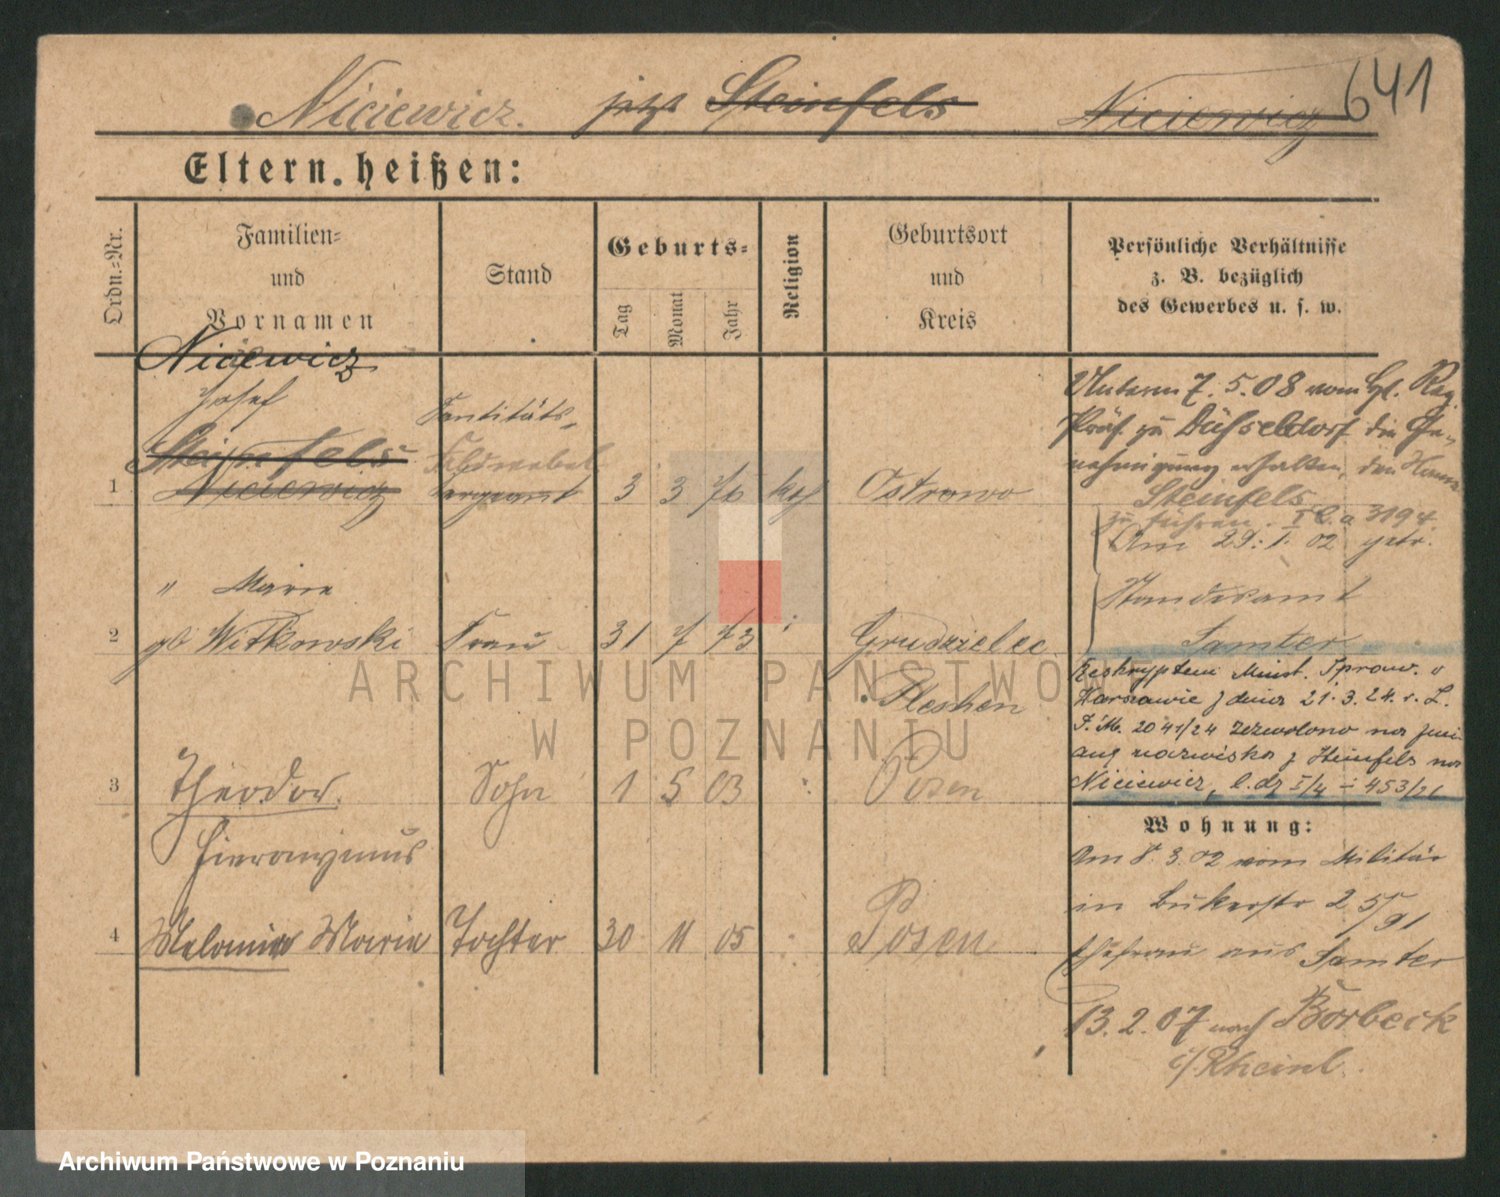 Niciewicz. jetzt Steinfels Niciewicz 641
Eltern. heißen:
Ordn.-Nr.
Familien-
und
Vornamen
Stand
Geburts-
Tag
Monat
Jahr
Religion
Geburtsort
und
Kreis
Persönliche Verhältnisse
z. B. bezüglich
des Gewerbes u. s. w.
Niciewicz
Josef
Steinfels
1 Niciewicz
Sanitäts-
Feldwebel
Sergeant
3 3 76 kath Ostrowo
" Marie
2 gb Witkowski Frau 31 7 73 Grudzielec
Pleschen
3 Theodor Sohn 1 5 03 Posen
Hieronymus
4 Melania Marie Tochter 30 11 05 Posen
Unterm 7.5.08 vom Kgl. Reg.
Präs. zu Düsseldorf die Ge-
nehmigung erhalten, den Namen
Steinfels
zu führen. I C. a 3194.
Am 29.1.02 getr.
Standesamt
Samter
Reskryptem Minst. Spraw. v
Warszawie z dnia 21.3.24. r. L.
P.M. 2041/24 zezwolono na zmi
anę nazwiska z Steinfels na
Niciewicz, l.dz I/4 - 453/26
Wohnung:
Am 8.3.02 vom Militär
in Bukerstr 25/91
Ehefrau aus Samter
13.2.07 nach Borbeck
i/Rheinl.
ARCHIWUM PAŃSTWOWE
W POZNANIU
Archiwum Państwowe w Poznaniu